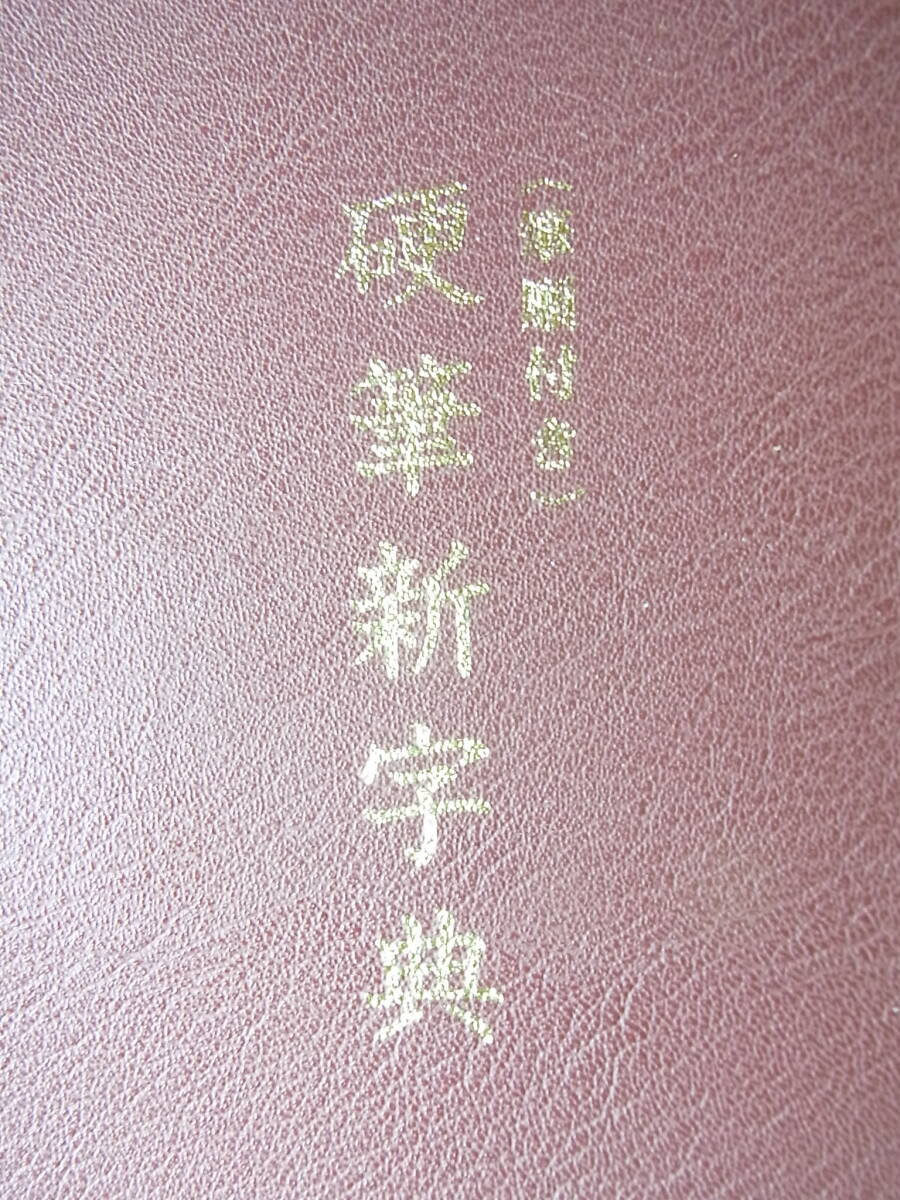 硬筆新字典